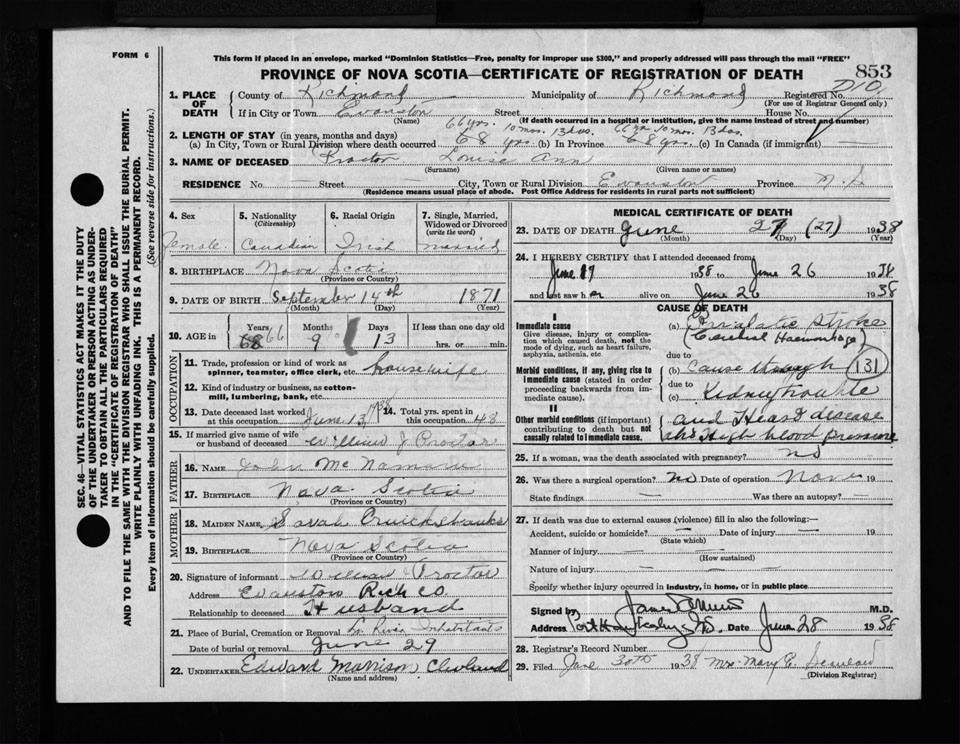 FORM 6
This form if placed in an envelope, marked "Dominion Statistics—Free, penalty for improper use $300," and properly addressed will pass through the mail "FREE"
PROVINCE OF NOVA SCOTIA—CERTIFICATE OF REGISTRATION OF DEATH 853
1. PLACE OF DEATH
County of Richmond Municipality of Richmond Registered No.
(For use of Registrar General only)
If in City or Town Evanston Street House No.
(Name) (If death occurred in a hospital or institution, give the name instead of street and number)
66 yrs. 10 mos. 13 dos. 66 yrs. 10 mos. 13 dos.
2. LENGTH OF STAY (in years, months and days)
(a) In City, Town or Rural Division where death occurred 68 yrs (b) In Province 68 yrs. (c) In Canada (if immigrant) —
3. NAME OF DECEASED Proctor Louise Ann
(Surname) (Given name or names)
RESIDENCE No. Street — City, Town or Rural Division Evanston Province N.S
(Residence means usual place of abode. Post Office Address for residents in rural parts not sufficient)
SEC. 46—VITAL STATISTICS ACT MAKES IT THE DUTY
OF THE UNDERTAKER OR PERSON ACTING AS UNDER-
TAKER TO OBTAIN ALL THE PARTICULARS REQUIRED
IN THE "CERTIFICATE OF REGISTRATION OF DEATH"
AND TO FILE THE SAME WITH THE DIVISION REGISTRAR WHO SHALL ISSUE THE BURIAL PERMIT.
WRITE PLAINLY WITH UNFADING INK. THIS IS A PERMANENT RECORD.
Every item of information should be carefully supplied. (See reverse side for instructions.)
4. Sex
Female
5. Nationality
(Citizenship)
Canadian
6. Racial Origin
Irish
7. Single, Married, Widowed or Divorced
(write the word)
married
8. BIRTHPLACE Nova Scotia
(Province or Country)
9. DATE OF BIRTH September 14th 1871
(Month) (Day) (Year)
10. AGE in Years Months Days If less than one day old
68 66 9 13 hrs. or min.
OCCUPATION
11. Trade, profession or kind of work as spinner, teamster, office clerk, etc. housewife
12. Kind of industry or business, as cotton-mill, lumbering, bank, etc.
13. Date deceased last worked at this occupation June 13, 1938
14. Total yrs. spent in this occupation 48
15. If married give name of wife or husband of deceased William J Proctor
FATHER
16. NAME John McNamara
17. BIRTHPLACE Nova Scotia
(Province or Country)
MOTHER
18. MAIDEN NAME Sarah Cruickshanks
19. BIRTHPLACE Nova Scotia
(Province or Country)
20. Signature of informant William Proctor
Address Evanston Rich Co.
Relationship to deceased Husband
21. Place of Burial, Cremation or Removal River Inhabitants
Date of burial or removal June 29
22. UNDERTAKER Edward Morrison, Cleveland
(Name and address)
MEDICAL CERTIFICATE OF DEATH
23. DATE OF DEATH June 27 (27) 1938
(Month) (Day) (Year)
24. I HEREBY CERTIFY that I attended deceased from
June 17 1938 to June 26 1938
and last saw her alive on June 26 1938
CAUSE OF DEATH
I
Immediate cause
Give disease, injury or complication which caused death, not the mode of dying, such as heart failure, asphyxia, asthenia, etc.
(a) Stroke
(Cerebral Haemorrhage)
due to
Morbid conditions, if any, giving rise to immediate cause (stated in order proceeding backwards from immediate cause).
(b) Cause through 131
due to
(c) Kidney trouble
II
Other morbid conditions (if important) contributing to death but not causally related to immediate cause.
and Heart disease
High blood pressure
25. If a woman, was the death associated with pregnancy? no
26. Was there a surgical operation? no Date of operation None 19
State findings — Was there an autopsy? —
27. If death was due to external causes (violence) fill in also the following:—
Accident, suicide or homicide? — Date of injury — 19
(State which)
Manner of injury — —
(How sustained)
Nature of injury — —
Specify whether injury occurred in industry, in home, or in public place
Signed by M.D.
Address Port Hawkesbury N.S. Date June 28 1938
28. Registrar's Record Number
29. Filed June 30th 1938 Mrs. Mary C.
(Division Registrar)